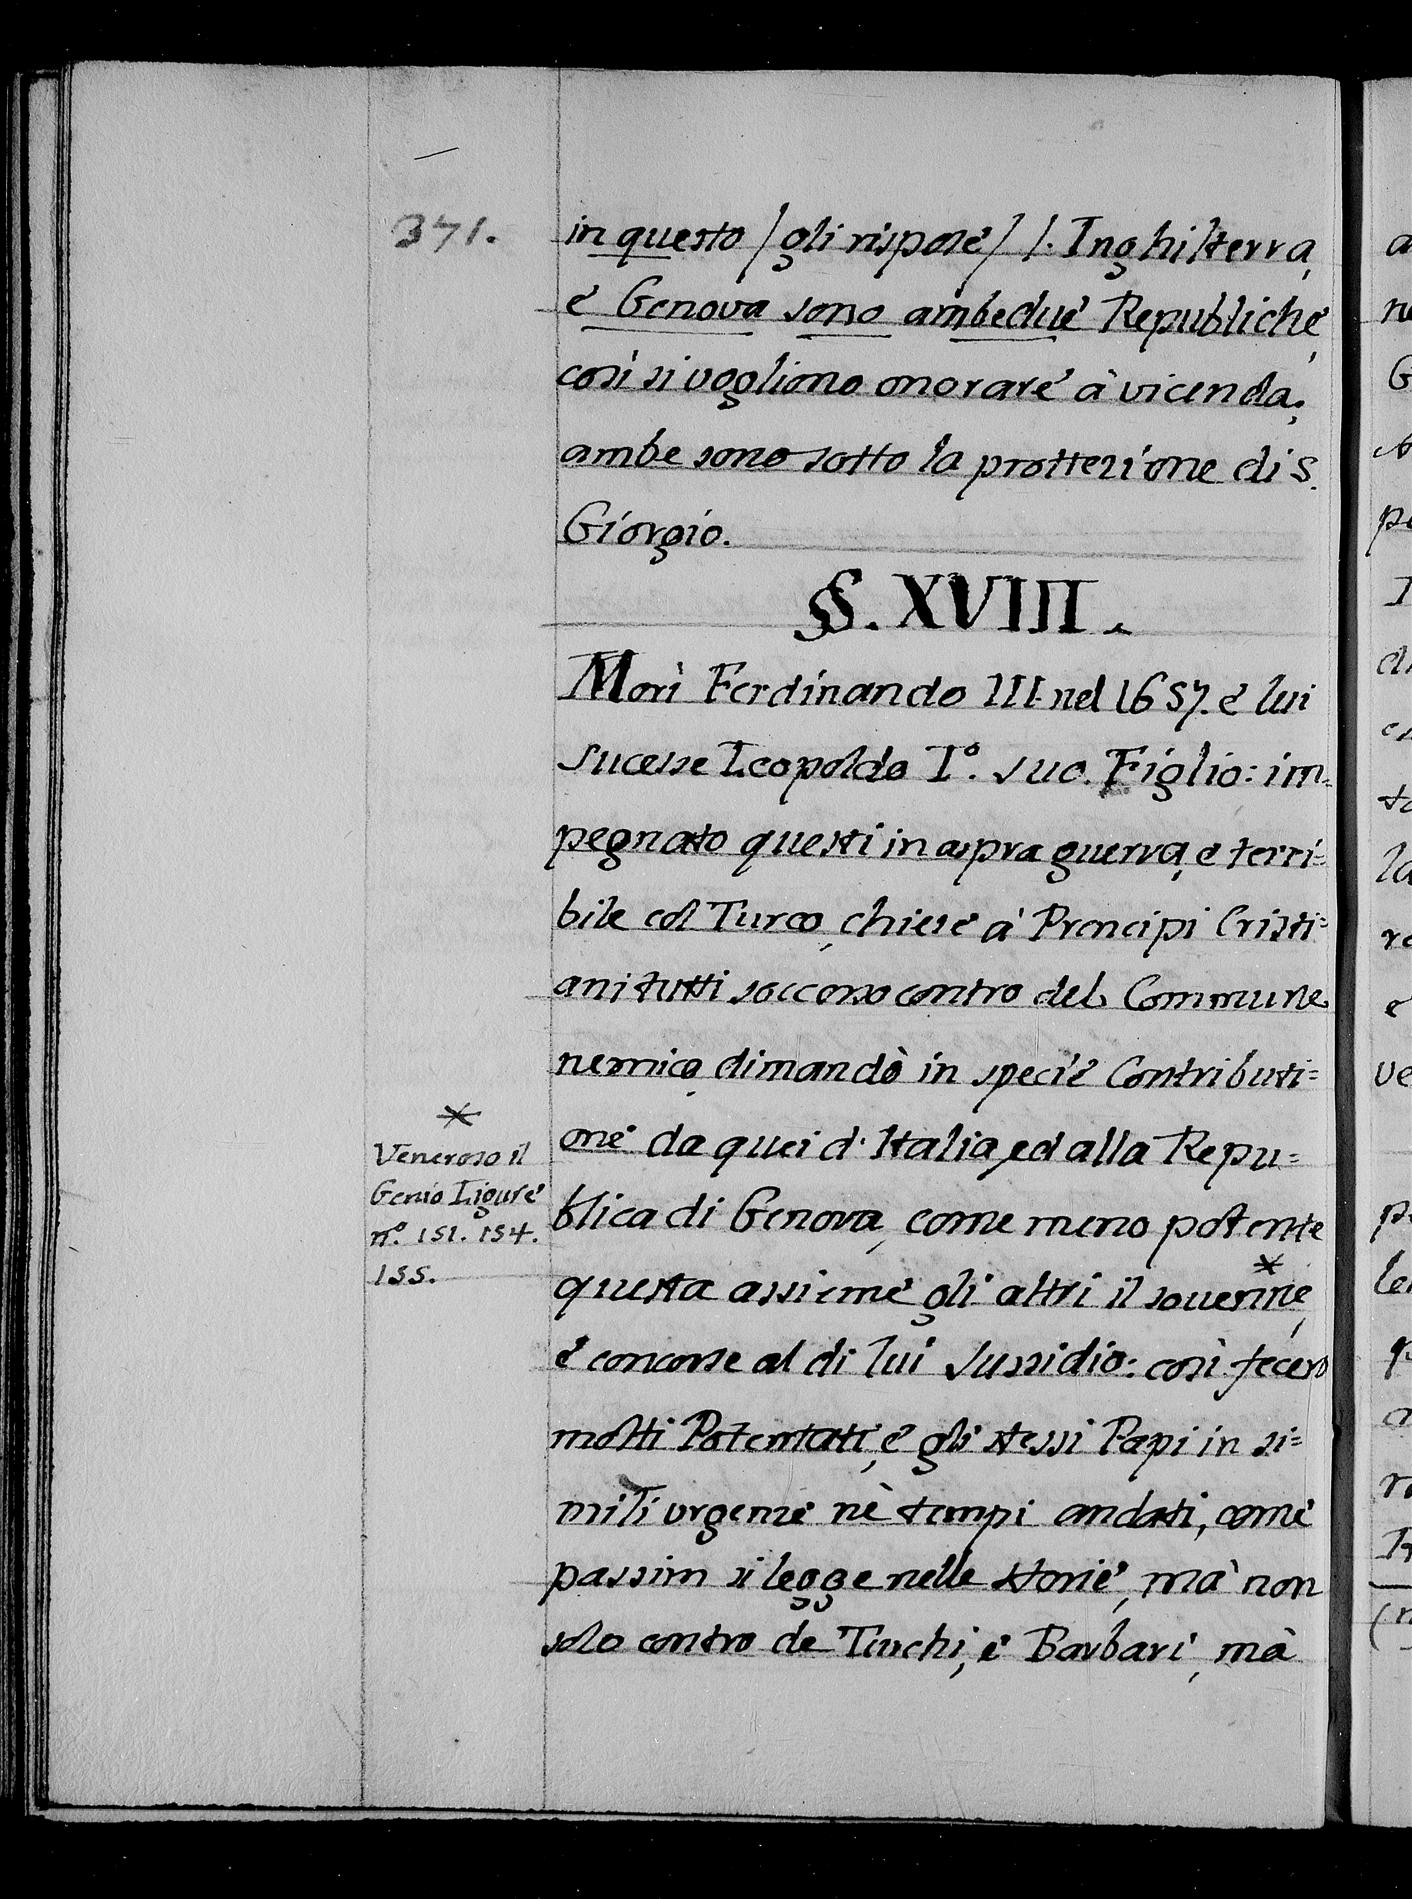 371.
in questo /gli rispose/ /. Inghilterra,
e Genova sono ambedue Republiche,
così si vogliono onorare à vicenda;
ambe sono sotto la protterione di S.
Giorgio.
§§. XVIII.
Morì Ferdinando III. nel 1657. e lui
sucesse Leopoldo I°. suo Figlio: im=
pegnato questi in aspra guerra, e terri=
bile col Turco, chiese à Prencipi Cristi=
ani tutti soccorso contro del Commune
nemico, dimandò in specie Contributi=
one da quei d'Italia, ed alla Repu=
blica di Genova, come meno potente
questa assieme gli altri il sovenne, *
e concorse al di lui sussidio: così fecero
molti Potentati, e gli stessi Papi in si=
mili urgenze nè tempi andati, come
passim si legge nelle storie, mà non
solo contro de Turchi, e Barbari, mà
*
Veneroso il
Genio Ligure
n°. 151. 154.
155.